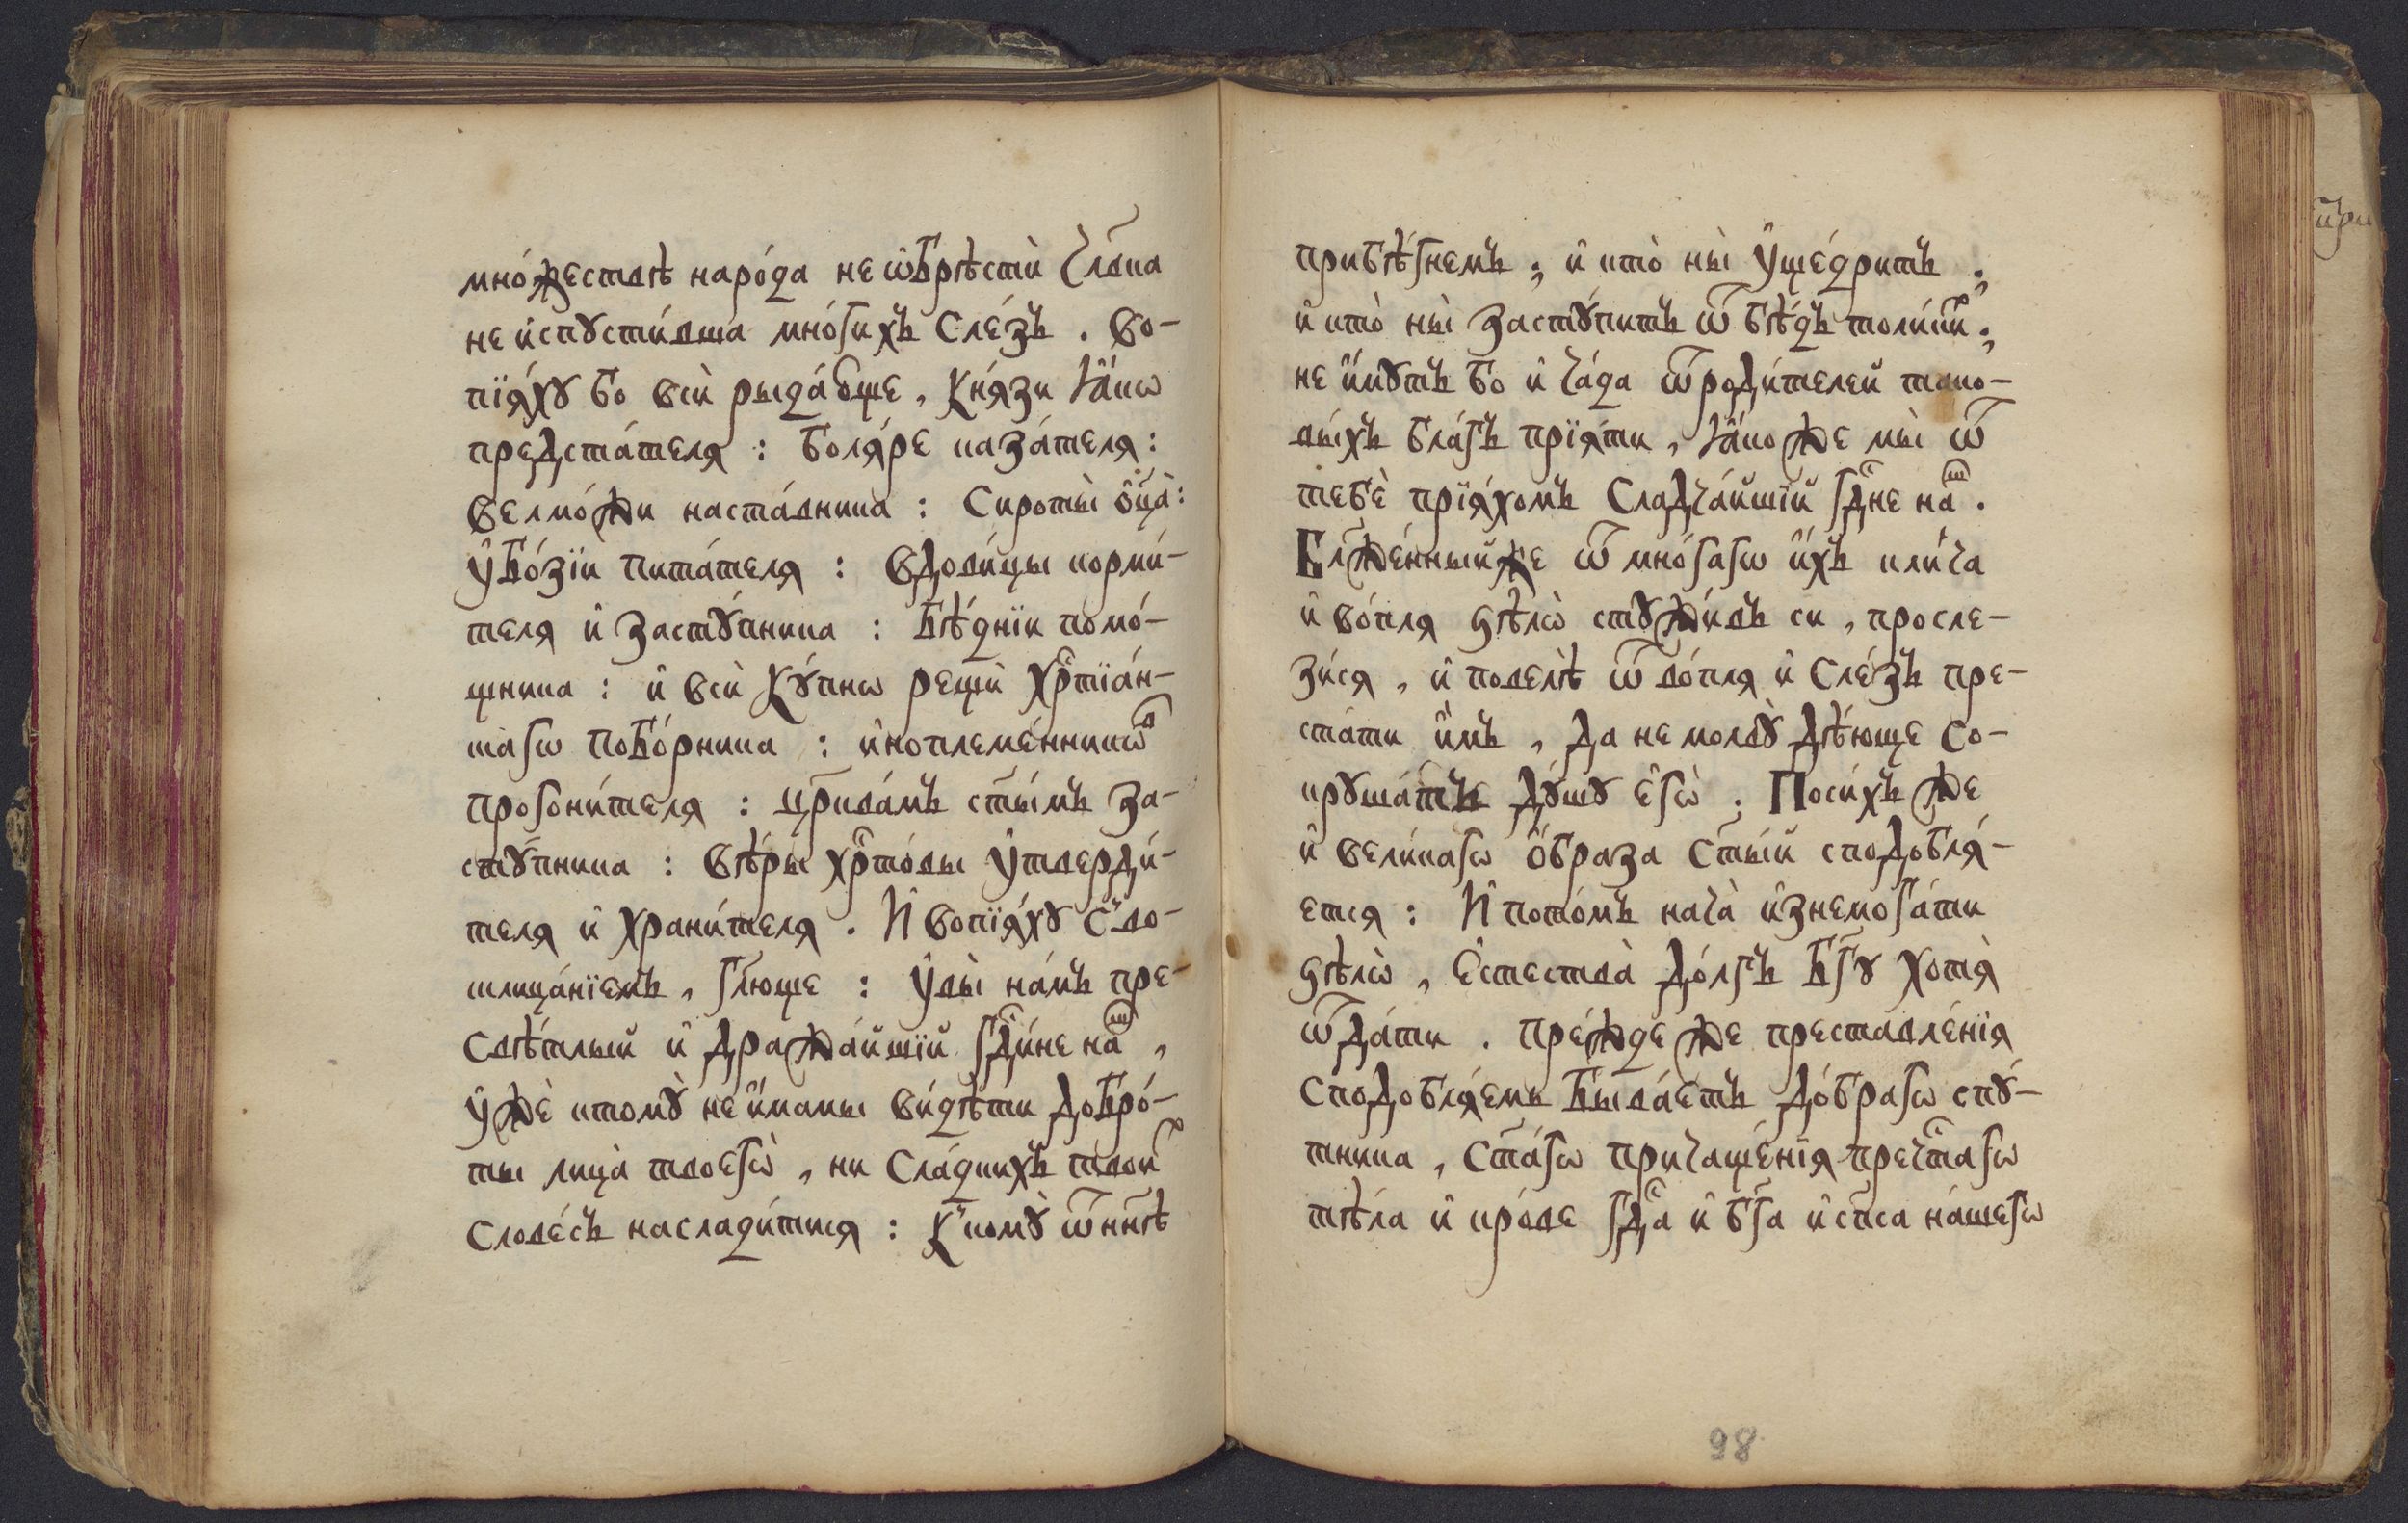 мно́жествѣ наро́да не ѡ҆брѣсти̑ чл҃вка
не и҆спꙋсти́вша мно́гихъ сле́зъ . во-
пїѧ́хꙋ бо всѝ рыда́юще , кнѧ́зи ꙗ҆́кѡ
предста́телѧ : болѧ́ре каза́телѧ :
велмо́жи наста́вника : сироты̀ о҆ц҃а̀ :
ᲂу҆бо́зїи пита́телѧ : вдови́цы корми́-
телѧ и҆ застꙋ́пника : бѣ́днїи помо́-
щника : и҆ всѝ кꙋ́пнѡ рещѝ хрⷭ҇тїа́н-
стагѡ побо́рника : и҆ноплеме́нникѡⷡ
прогони́телѧ : цр҃ква́мъ ст҃ы́мъ за-
стꙋ́пника : вѣ́ры хрⷭ҇то́вы ᲂу҆тверди́-
телѧ и҆ храни́телѧ . И҆ вопїѧ́хꙋ с̾во-
склица́нїемъ , гл҃юще : ᲂу҆вы̀ на́мъ пре-
свѣ́тлый и҆ дража́йшїй гдⷭ҇и́не на́ⷲ ,
ᲂу҆жѐ ктомꙋ̀ не и҆́мамы ви́дѣти добро́-
ты лица̀ твоегѡ̀ , ни сла́дкихъ твоиⷯ
слове́съ наслади́тисѧ : к̾комꙋ̀ ѿ нн҃ѣ
прибѣ́гнемъ ; и҆ кто̀ ны̀ ᲂу҆ще́дритъ ;
и҆ кто̀ ны̀ застꙋ́питъ ѿ бѣ́дъ толи́киⷯ ;
не и҆́мꙋтъ бо и҆ ча́да ѿ роди́телей тако-
вы́хъ бла́гъ прїѧ́ти , ꙗ҆́коже мы̀ ѿ
тебѐ прїѧ́хомъ сладча́йшїй гдⷭ҇не на́ⷲ .
Бл҃же́нный же ѿ мно́гагѡ и҆́хъ кли́ча
и҆ во́плѧ ѕѣлѡ̀ стꙋжи́въ си , просле-
зи́сѧ , и҆ повелѣ̀ ѿ во́плѧ и҆ сле́зъ пре-
ста́ти и҆̀мъ , да не молвꙋ̀ дѣ́юще со-
крꙋша́тъ дꙋ́шꙋ є҆гѡ̀ . По си́хъ же
и҆ вели́кагѡ ѻ҆́браза ст҃ы́й сподоблѧ́-
етсѧ : И҆ пото́мъ нача̀ и҆знемога́ти
ѕѣлѡ̀ , є҆стества̀ до́лгъ бг҃ꙋ хотѧ̀
ѿда́ти . пре́жде же преставле́нїѧ
сподоблѧ́емь быва́етъ до́брагѡ спꙋ́-
тника , ст҃а́гѡ причаще́нїѧ пречⷭ҇тагѡ
тѣ́ла и҆ кро́ве гдⷭ҇а и҆ бг҃а и҆ сп҃са на́шегѡ
98